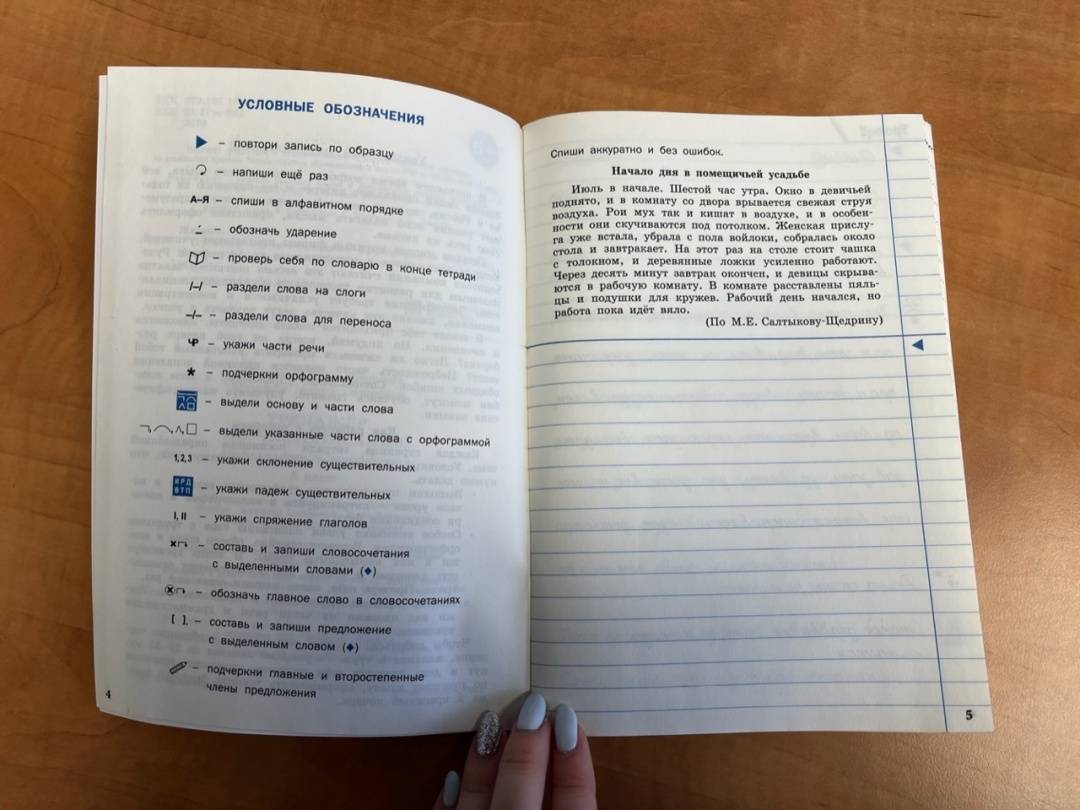 УСЛОВНЫЕ ОБОЗНАЧЕНИЯ
– повтори запись по образцу
– напиши ещё раз
А–Я – спиши в алфавитном порядке
– обозначь ударение
– проверь себя по словарю в конце тетради
/–/ – раздели слова на слоги
–/– – раздели слова для переноса
ЧР – укажи части речи
* – подчеркни орфограмму
– выдели основу и части слова
– выдели указанные части слова с орфограммой
1,2,3 – укажи склонение существительных
ИРД
ВТП – укажи падеж существительных
I, II – укажи спряжение глаголов
– составь и запиши словосочетания
с выделенными словами (◆)
– обозначь главное слово в словосочетаниях
[ ]. – составь и запиши предложение
с выделенным словом (◆)
– подчеркни главные и второстепенные
члены предложения
4
Спиши аккуратно и без ошибок.
Начало дня в помещичьей усадьбе
Июль в начале. Шестой час утра. Окно в девичьей
поднято, и в комнату со двора врывается свежая струя
воздуха. Рои мух так и кишат в воздухе, и в особен-
ности они скучиваются под потолком. Женская прислу-
га уже встала, убрала с пола войлоки, собралась около
стола и завтракает. На этот раз на столе стоит чашка
с толокном, и деревянные ложки усиленно работают.
Через десять минут завтрак окончен, и девицы скрыва-
ются в рабочую комнату. В комнате расставлены пяль-
цы и подушки для кружев. Рабочий день начался, но
работа пока идёт вяло.
(По М.Е. Салтыкову-Щедрину)
5